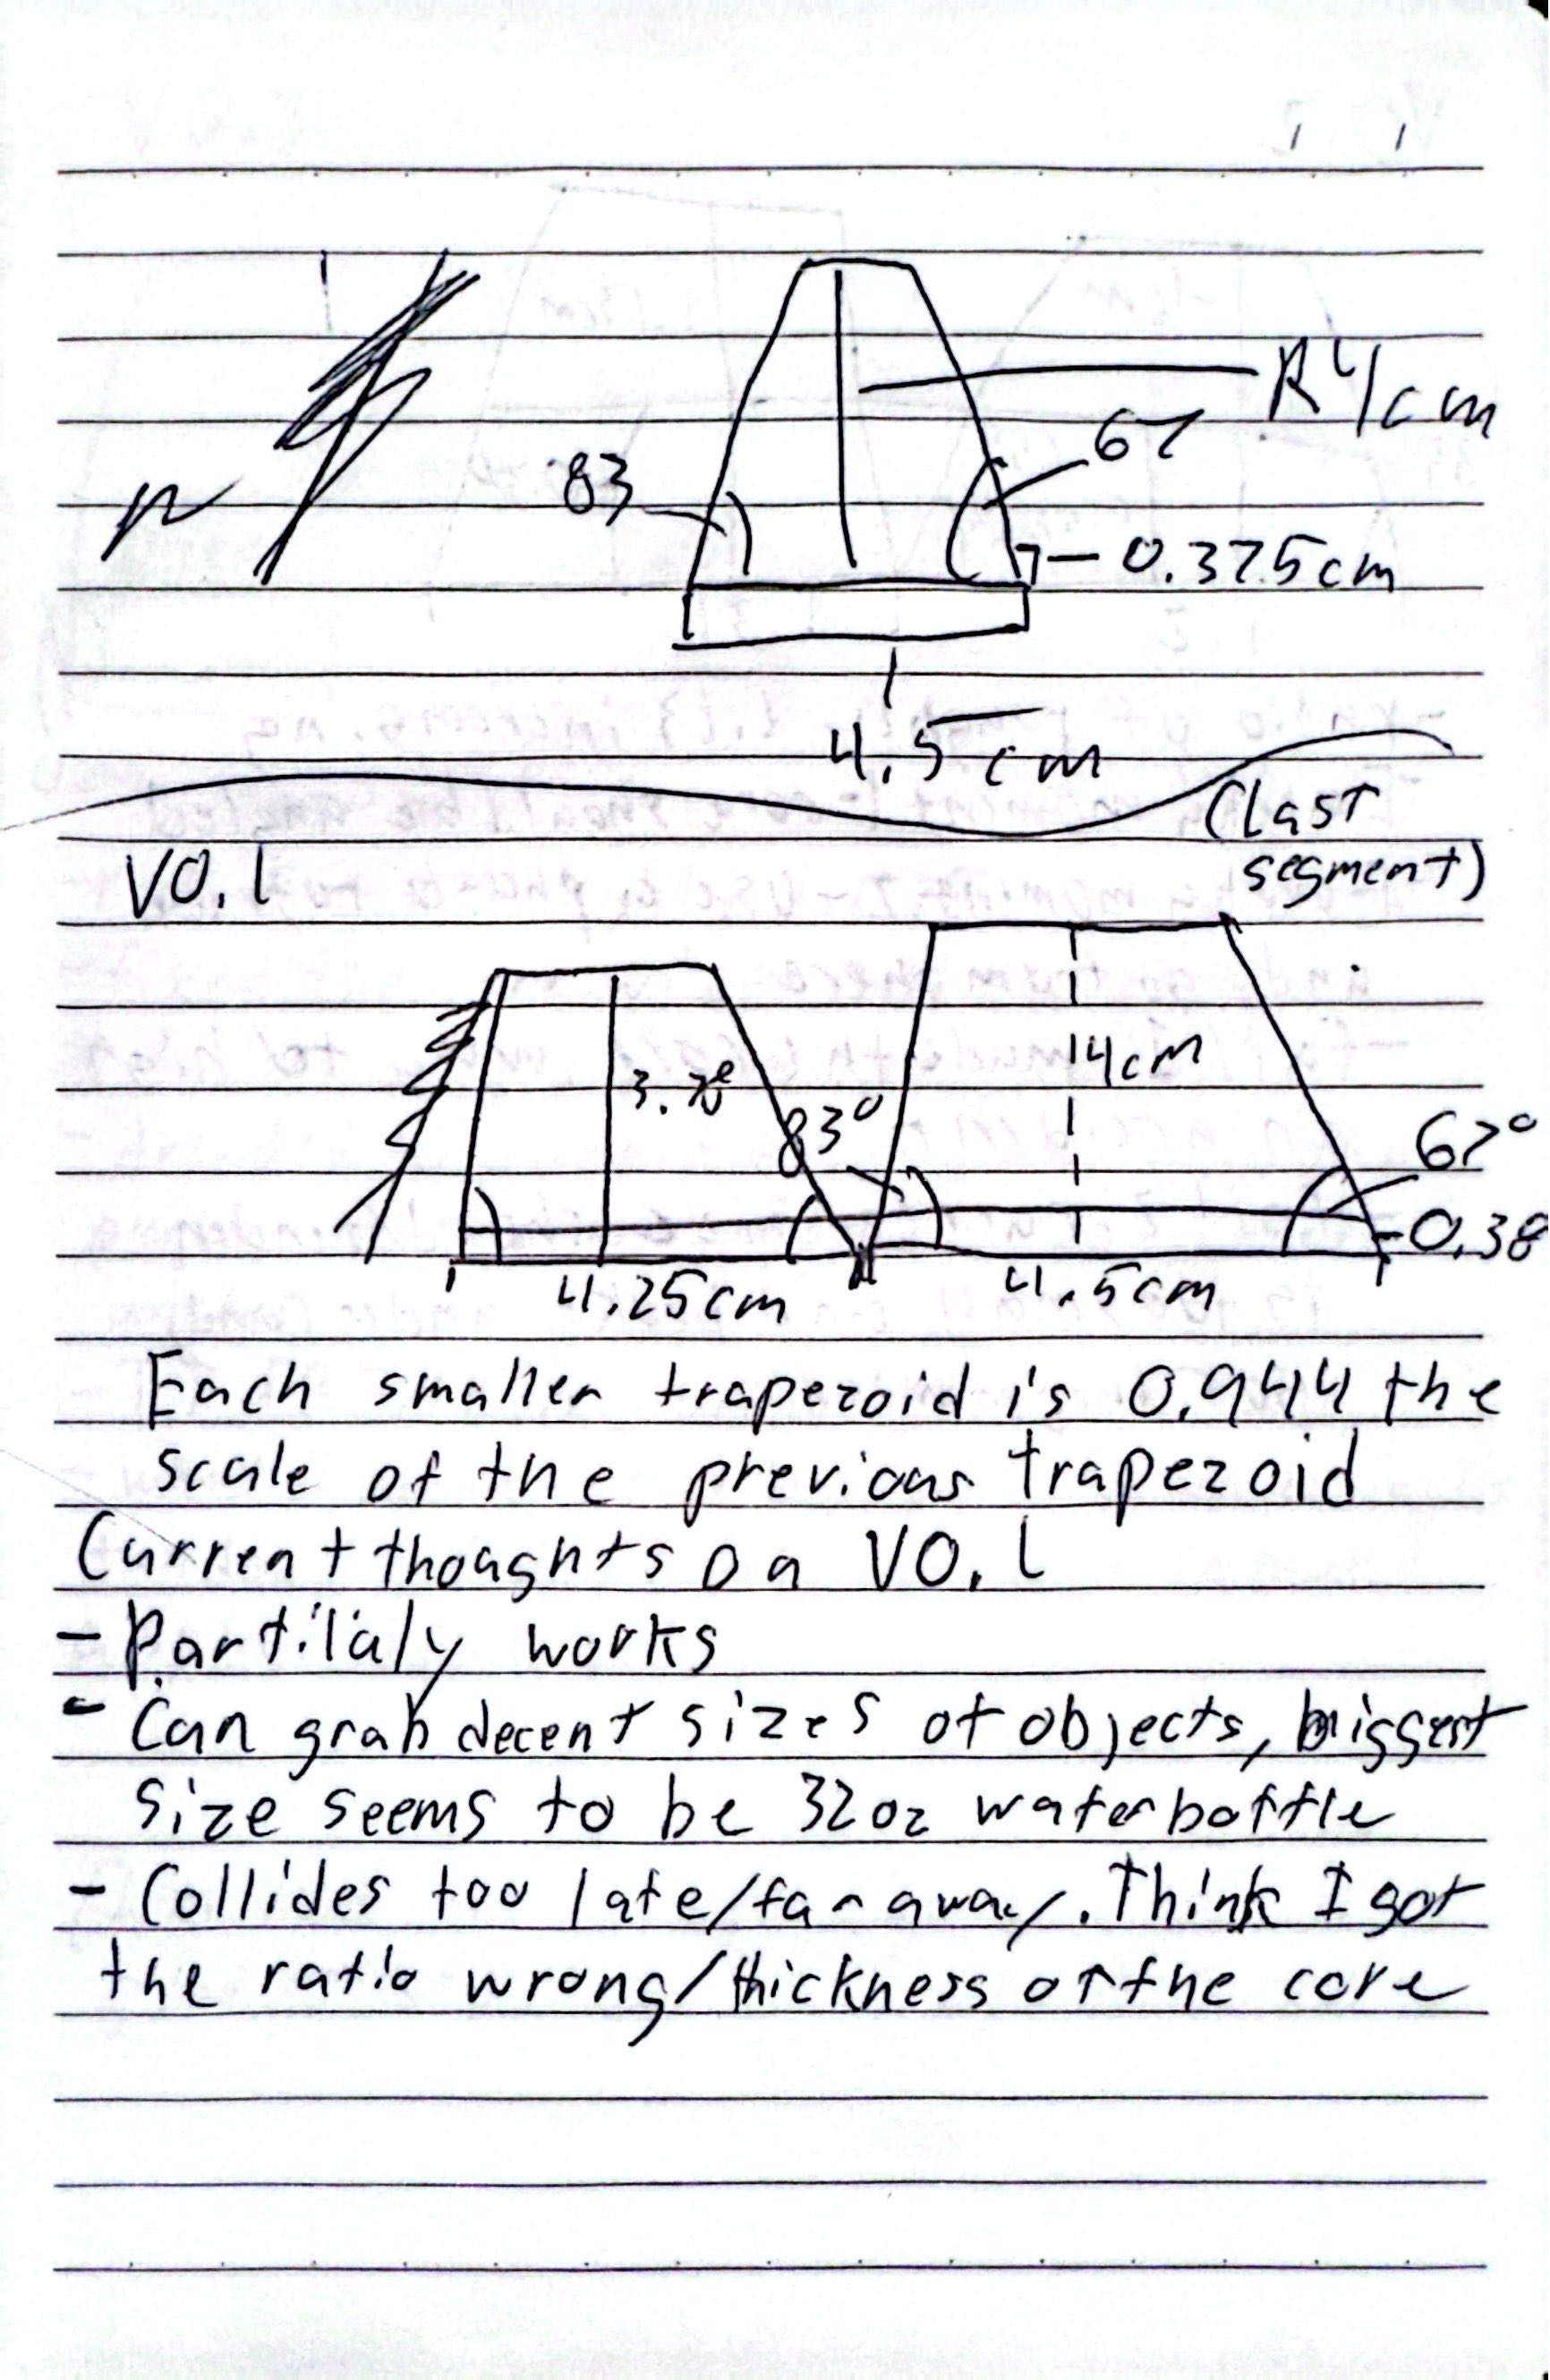 4cm
67
83
0.375cm
4.5cm
(last
segment)
V0.1
3.78
14cm
83°
67°
0.38
4.25cm
4.5cm
Each smaller trapezoid is 0.944 the
scale of the previous trapezoid
Current thoughts on V0.1
- Partilaly works
- Can grab decent sizes of objects, biggest
size seems to be 32oz waterbottle
- Collides too late/far away. Think I got
the ratio wrong/thickness of the core